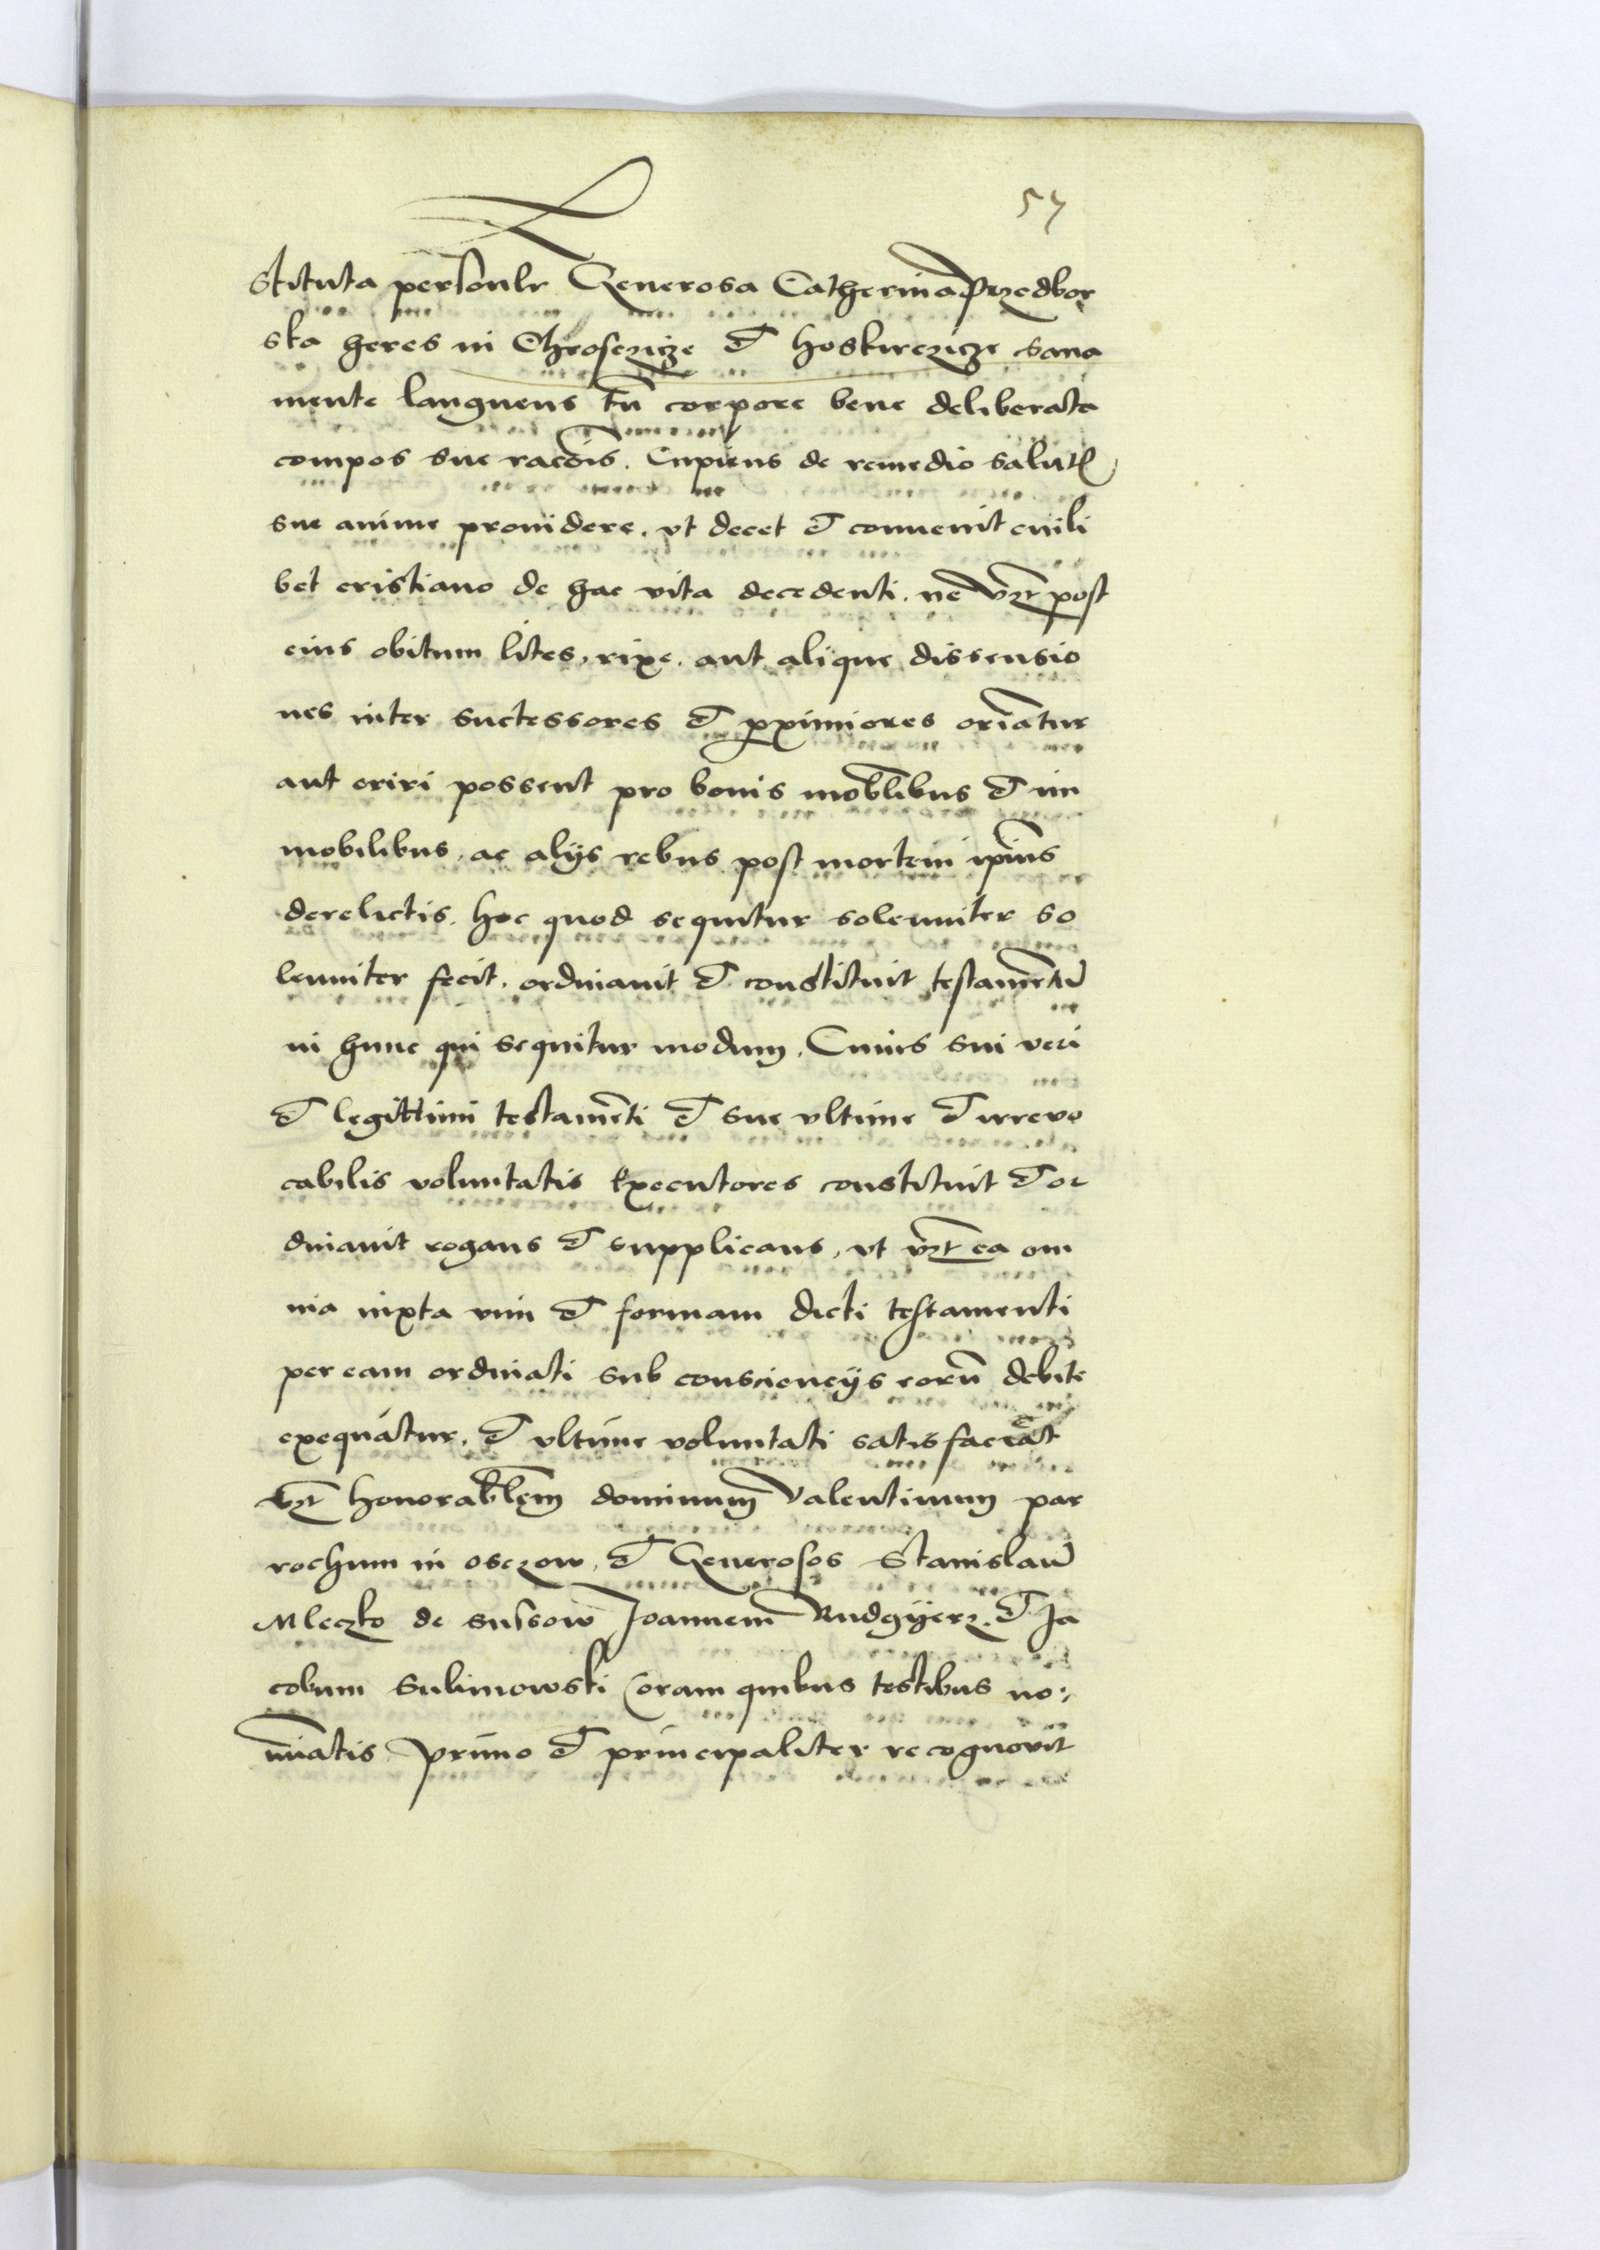 57
Stituta personlr Generosa Catherina Przedbor
ska heres in Chrosczicze et hoskwczicze sana
mente languens tn̄ corpore bene deliberata
compos sue racōis. Cupiens de remedio salutꝭ
sue anime prouidere. vt decet et conuenit cuili
bet cristiano de hac vita decedenti. ne vꝫ post
eius obitum lites, rixe. aut alique dissensio
nes inter suctessores et ꝓximiores oriātur
aut oriri possent pro bonis mobl̄ibus et im
mobilibus, ac alijs rebus post mortem ip̄ius
derelictis. hoc quod sequitur solemniter so
lemniter fecit. ordinauit et constituit testamētū
in hunc qui sequitur modum. Cuius sui veri
et legittimi testamēti et sue vltime et irreuo
cabilis voluntatis Executores constituit et or
dinauit rogans et supplicans, vt vꝫ ea om
nia iuxta vim et formam dicti testamenti
per eam ordinati sub consciencijs eorū debite
exequātur. et vltime voluntati satisfaceāt
vꝫ honorabl̄em dominum Valentinum par
rochum in osczow, et Generosos Stanislaū
Mleczko de sulsow Joannem Rudgÿerz. et Ja
cobum Sulimowski Coram quibus testibus no:
mīatis Primo et principaliter recognouit